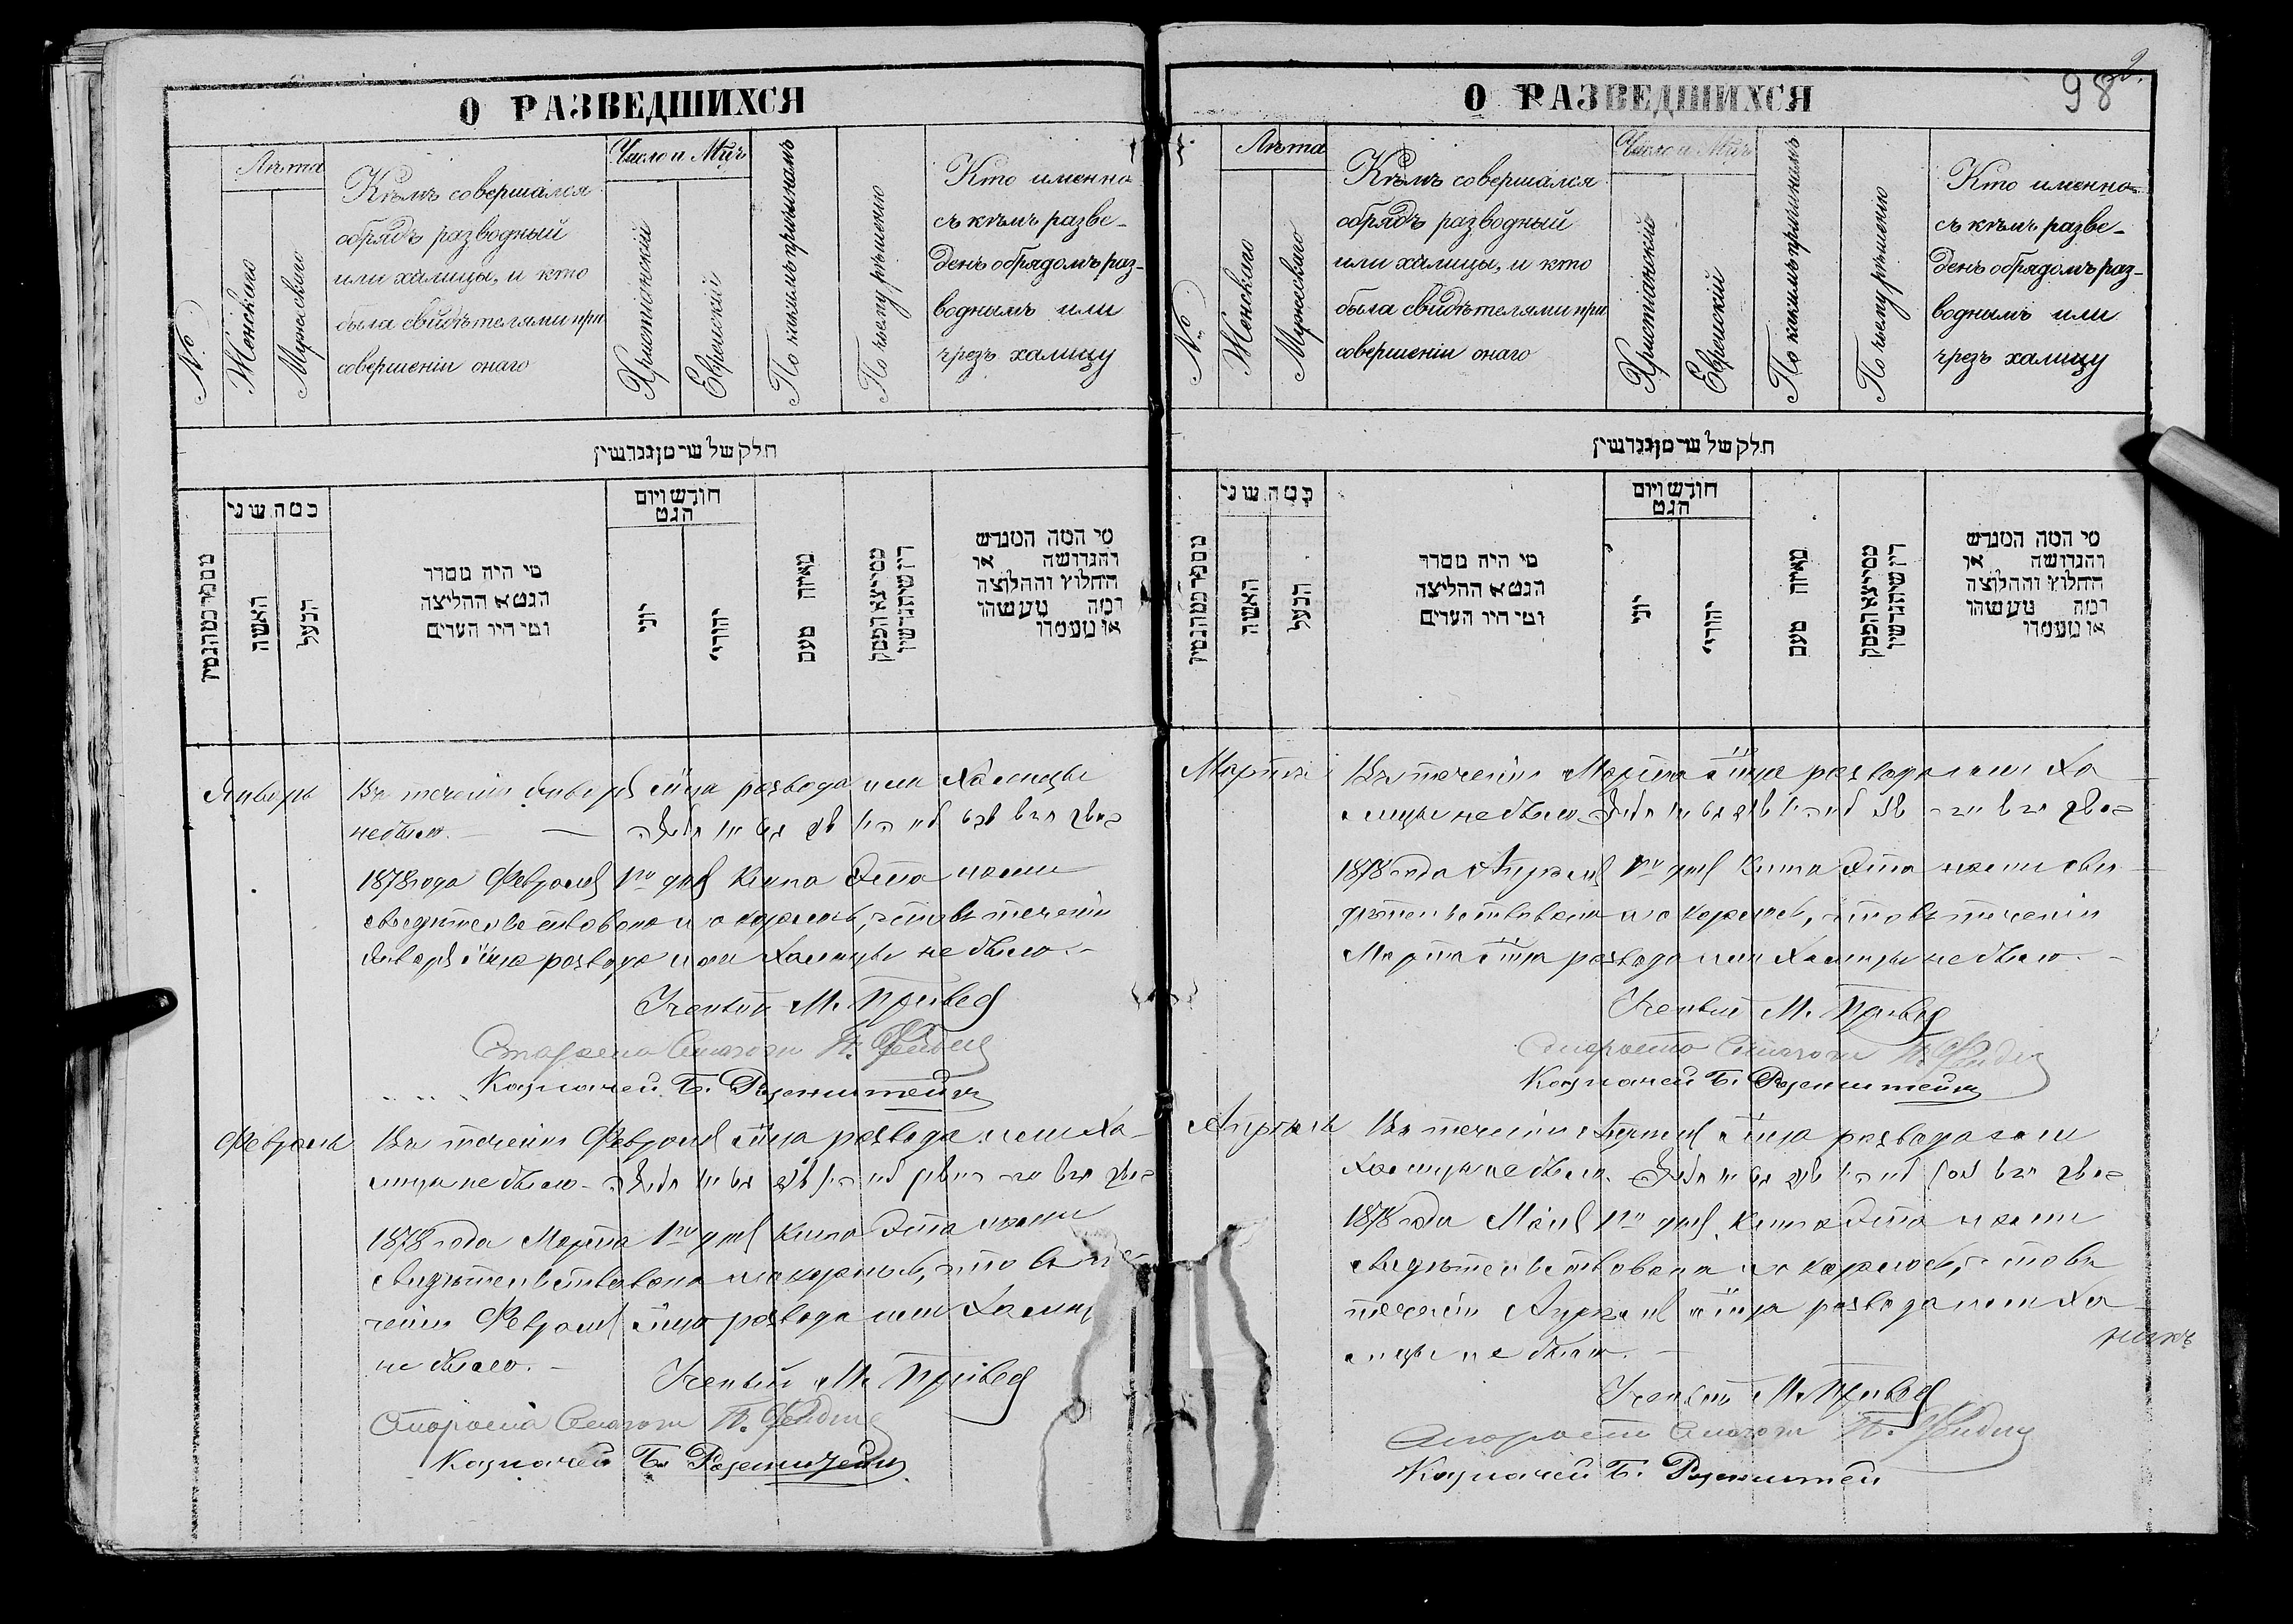 О РАЗВЕДШИХСЯ
№
Лѣта
Женскаго
Мужескаго
Кѣмъ совершался
обрядъ разводный
или халицы, и кто
была свидѣтелями при
совершеніи онаго
Число и Мцъ
Христіанскій
Еврейскій
По какимъ причинамъ
По чьему рѣшенію
Кто именно
съ кѣмъ разве-
денъ обрядомъ раз-
воднымъ или
чрезъ халицу
חלק של שי מן גגרשין
כמה שני
האשה
הבעל
מי היה מסדר
הגט א ההליצה
ומי היו העדים
חודש ויום
הגט
יוני
יהודי
מאיזה טעם
מי המה המגרש
והגרושה או
החלוץ וההלוצה
ומה מעשהו
או מעמדו
Январь
Въ теченіи Января мца развода или Халицы
небыло.
1878 года Февраля 1го дня Книга Эта нами
свидѣтельствована и оказалось, что въ теченіи
Января мца развода или Халицы не было.-
Ученый М. Привес
Староста Синагоги
Казначей Б. Розенштейнъ
Февраль
Въ теченіи Февраля мца развода или Ха-
лицы не было-
1878 года Марта 1го дня Книга Эта нами
свидѣтельствована и оказалось, что въ те-
ченіи Февраля мца развода или Халиц
не было.-
Ученый М. Привес
Староста Синагоги
Казначей Б. Розенштейнъ
98
О РАЗВЕДШИХСЯ
№
Лѣта
Женскаго
Мужескаго
Кѣмъ совершался
обрядъ разводный
или халицы, и кто
была свидѣтелями при
совершеніи онаго
Число и Мцъ
Христіанскій
Еврейскій
По какимъ причинамъ
По чьему рѣшенію
Кто именно
съ кѣмъ разве-
денъ обрядомъ раз-
воднымъ или
чрезъ халицу
חלק של שי מן גגרשין
כמה שני
האשה
הבעל
מי היה מסדר
הגט א ההליצה
ומי היו העדים
חודש ויום
הגט
יוני
יהודי
מאיזה טעם
מי המה המגרש
והגרושה או
החלוץ וההלוצה
ומה מעשהו
או מעמדו
Мартъ
Въ теченіи Марта мца развода или Ха-
лицы не было.
1878 года Апреля 1го дня Книга Эта нами сви-
дѣтельствована и оказалось, что въ теченіи
Марта мца развода или Халицы не было.-
Ученый М. Привес
Староста Синагоги
Казначей Б. Розенштейнъ
Апрель
Въ теченіи Апреля мца развода или
Халицы не было.
1878 года Маія 1го дня Книга Эта нами
свидѣтельствована и оказалось, что въ
теченіи Апреля мца развода или Ха-
лицы не было.-
Ученый М. Привес
Староста Синагоги
Казначей Б. Розенштей